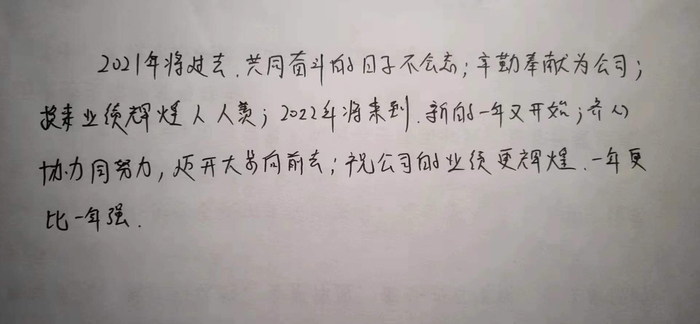 2021年将过去.共同奋斗的日子不会忘;辛勤奉献为公司;
换来业绩辉煌人人羡;2022年将来到.新的一年又开始;齐心
协力同努力,迈开大步向前去;祝公司的业绩更辉煌.一年更
比一年强.